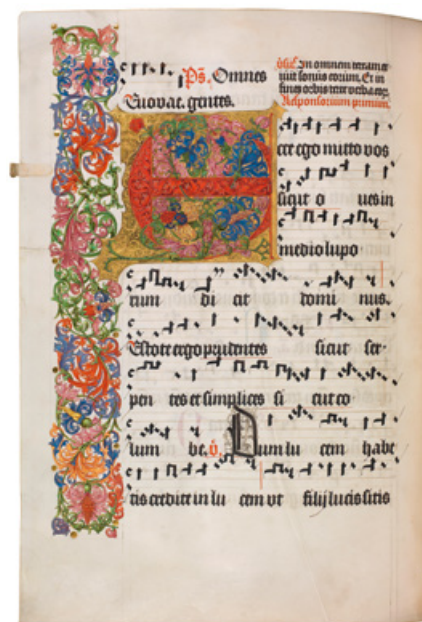 Ps. Omnes
Euovae. gentes.
V. In omnem terram e
xiuit sonus eorum. Et in
fines orbis terre verba eorum.
Responsorium primum.
E
cce ego mitto vos
sicut o ues in
medio lupo
rum di cit domi nus.
Estote ergo prudentes sicut ser-
pen tes et simplices si cut co
lum be. V. Dum lu cem habe
tis credite in lu cem vt filij lucis sitis